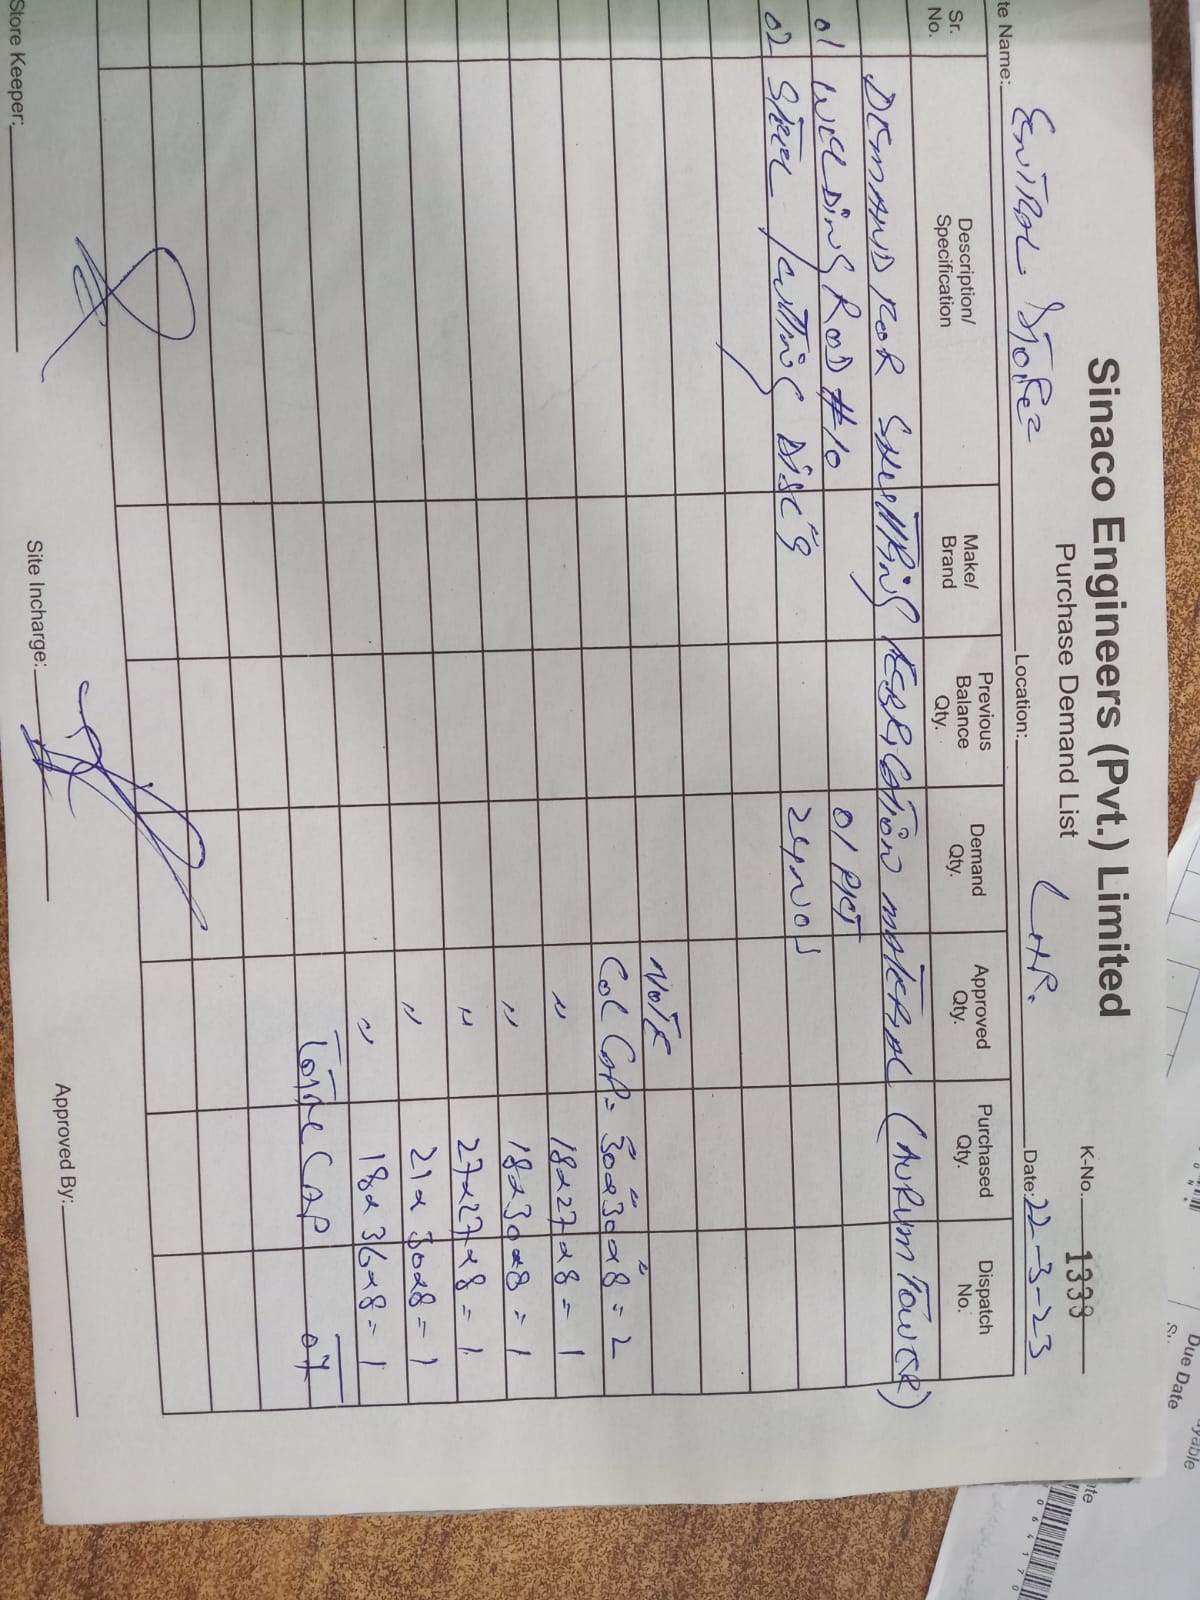 Sinaco Engineers (Pvt.) Limited
Purchase Demand List
K-No. 1333
te Name: Central Store Location: LHR. Date: 22-3-23
Sr. No. Description/ Specification Make/ Brand Previous Balance Qty. Demand Qty. Approved Qty. Purchased Qty. Dispatch No.
DEMAND FOR SHUTTRING FEBRICATION MATERIAL (AURUM TOWER)
01 WELDING ROD #10 01 PKT
02 STEEL CUTTING DISC 9" 24 NOS
NOTE
COL CAP = 30"x30"x8" = 2
" 18x27x8 = 1
" 18x30x8 = 1
" 27x27x8 = 1
" 21x30x8 = 1
" 18x36x8 = 1
TOTAL CAP 07
Store Keeper: Site Incharge: Approved By:
Due Date
yable
064170